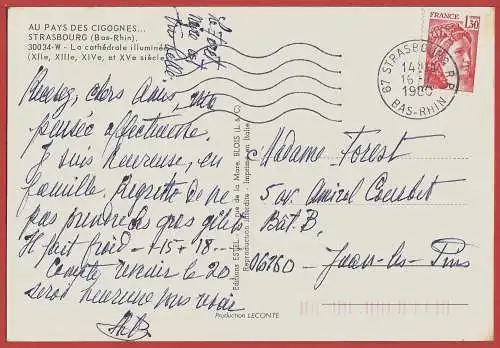 AU PAYS DES CIGOGNES...
STRASBOURG (Bas-Rhin).
30034-W - La cathédrale illuminée
(XIIe, XIIIe, XIVe, et XVe siècle)
le foret
noire est
très belle.
FRANCE
1,30
67 STRASBOURG R.P.
14H
16 -
1980
BAS-RHIN
Recevez, chers Amis, notre
pensée affectueuse.
Je suis heureuse, en
famille. Regrette de ne
pas prendre
Il fait froid - + 15 + 18 -
Compte revenir le 20
serai heureuse vous voir
Editions ESTEL, rue de la Mare, BLOIS (L.&C.)
Reproduction interdite - Imprimé en Italie
Madame Forest
5 av. Amiral Courbet
Bât. B.
06160 - Juan-les-Pins
Production LECONTE